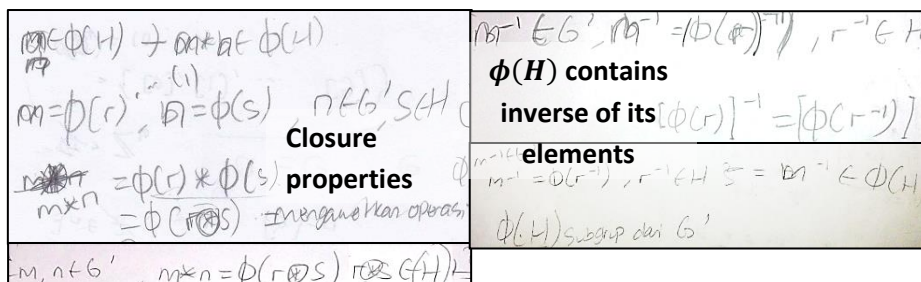 m ∈ Φ(H) → m*n ∈ Φ(H)
(1)
m = Φ(r), n = Φ(s), n ∈ G', s ∈ H
Closure
properties
m*n = Φ(r) * Φ(s)
= Φ(r⊛s) =mengawetkan operasi
m, n ∈ G' m*n = Φ(r⊛s) r⊛s ∈ (H)
m⁻¹ ∈ G', m⁻¹ = (Φ(r))⁻¹, r⁻¹ ∈ H
ϕ(H) contains
inverse of its
elements
[Φ(r)]⁻¹ = [Φ(r⁻¹)]
m⁻¹ = Φ(r⁻¹), r⁻¹ ∈ H = m⁻¹ ∈ Φ(H
Φ(H) subgrup dari G'